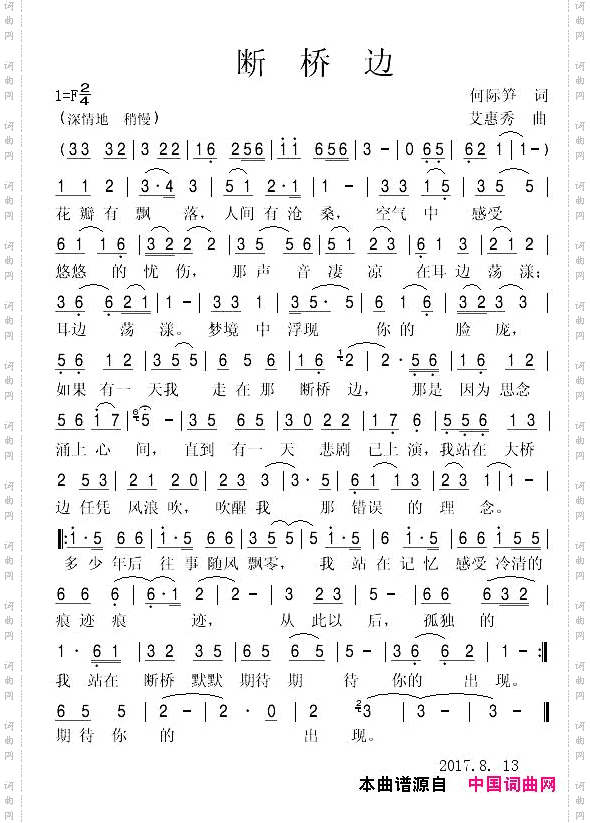 断 桥 边
1=F 2/4
何际笋 词
(深情地 稍慢)
艾惠秀 曲
(33 32 | 3 22 | 16 256 | i i | 656 | 3 - | 0 65 | 62 1 | 1 -)
1 1 2 | 3·4 3 | 51 2·1 | 1 - | 33 15 | 35 5 |
花 瓣 有 飘 落，人间 有 沧 桑， 空气 中 感受
61 16 | 322 2 | 35 5 | 56 51 | 23 | 61 213 | 2 - |
悠悠 的 忧 伤， 那 声 音 凄 凉 在耳 边 荡 漾；
36 6 21 | 1 - | 33 1 | 35· 5 | 61 6 | 323 3 |
耳边 荡 漾。梦境 中 浮现 你 的 脸 庞，
56 12 | 355 | 6 5 6 | 5 1 | 16 2 | 2· 56 | 16 12 |
如果 有一 天我 走 在 那 断桥 边， 那是 因为 思念
56 17 | 5 - | 65 35 | 3 0 22 | 1 76 | 5 556 | 1 3 |
涌上 心 间， 直到 有 一 天 悲剧 已上 演，我站在 大桥
2 53 | 21 21 | 2 23 3 | 3· 5 | 61 13 | 23 | 1 - |
边 任凭 风浪 吹， 吹醒 我 那 错误 的 理 念。
1·5 66 | 1·5 66 | 35 5 | 5 1·5 | 66 6 | 1 55 |
多 少 年后 往 事 随风 飘零， 我 站 在 记 忆 感受 冷清的
66 2 | 6·1 2 | 2 - | 23 3 | 2 2 | 66 32 |
痕 迹 痕 迹， 从 此 以 后， 孤独 的
1· 61 | 33 55 | 66 5 | 5 - | 36 62 | 1 - :|
我 站在 断桥 默默 期待 期 待 你的 出 现。
6 5 5 | 2 - | 2· 0 | 2 3 | 3 - | 3 - ‖
期 待 你 的 出 现。
2017.8. 13
本曲谱源自 中国词曲网
词曲网